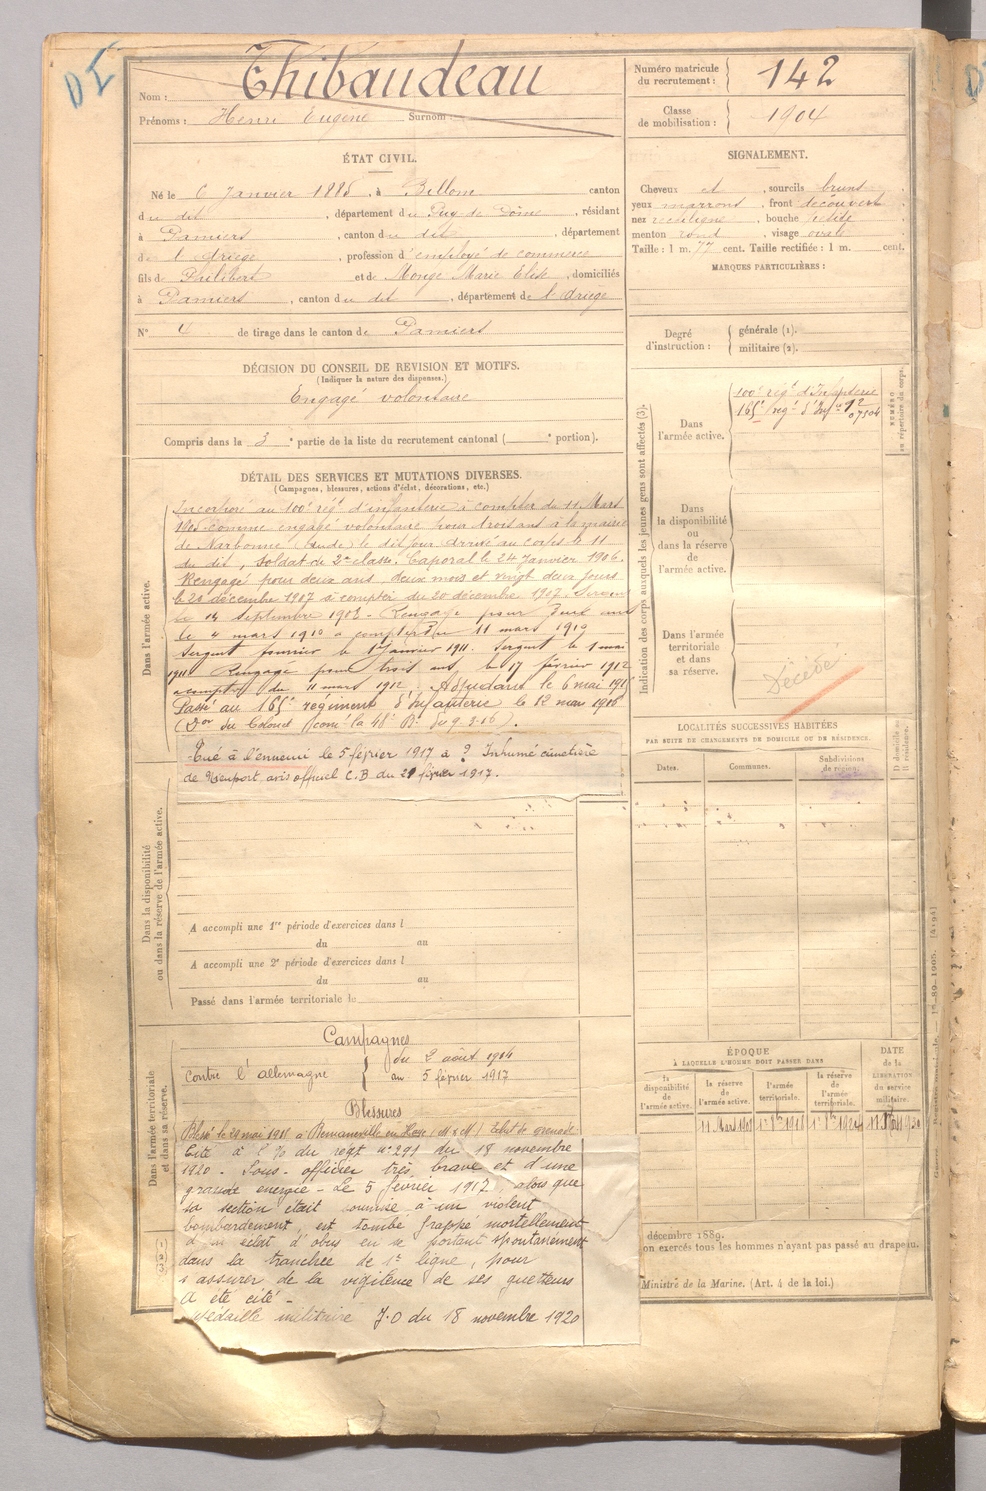 DI
Nom : Thibaudeau
Prénoms : Henri Eugène Surnom :
Numéro matricule du recrutement : 142
Classe de mobilisation : 1904
ÉTAT CIVIL.
Né le 6 Janvier 1885, à Billom canton
du dit, département du Puy de Dôme, résidant
à Pamiers, canton du dit département
de l'Ariège, profession d'employé de commerce
fils de Philibert et de Monge Marie Elise, domiciliés
à Pamiers, canton du dit, département de l'Ariège
N° 4 de tirage dans le canton de Pamiers
SIGNALEMENT.
Cheveux et, sourcils bruns
yeux marrons, front découvert
nez rectiligne, bouche petite
menton rond, visage ovale
Taille : 1 m. 77 cent. Taille rectifiée : 1 m. cent.
MARQUES PARTICULIÈRES :
Degré d'instruction : générale (1).
militaire (2).
DÉCISION DU CONSEIL DE REVISION ET MOTIFS.
(Indiquer la nature des dispenses.)
Engagé volontaire
Compris dans la 3e partie de la liste du recrutement cantonal ( e portion).
DÉTAIL DES SERVICES ET MUTATIONS DIVERSES.
(Campagnes, blessures, actions d'éclat, décorations, etc.)
Dans l'armée active.
Incorporé au 100e régt d'infanterie à compter du 11 Mars
1905 comme engagé volontaire pour trois ans à la mairie
de Narbonne (Aude) le dit jour arrivé au corps le 11
du dit, soldat de 2e classe. Caporal le 24 Janvier 1906.
Rengagé pour deux ans, deux mois et vingt deux jours
le 20 décembre 1907 à compter du 20 décembre 1907.
le 14 Septembre 1908 - Rengagé pour deux ans
le 4 mars 1910 à compter du 11 mars 1910
Sergent fourrier le 1er Janvier 1911. Sergent le 1 mai
1911 Rengagé pour trois ans, le 17 février 1912
à compter du 11 mars 1912. Adjudant le 6 mai 1915
Passé au 165e régiment d'Infanterie le 12 mai 1916
(Don du Colonel Comt la 48e Be du 9-3-16).
Tué à l'ennemi le 5 février 1917 à ? Inhumé cimetière
de Nieuport avis officiel C.B du 21 février 1917.
Dans la disponibilité ou dans la réserve de l'armée active.
A accompli une 1re période d'exercices dans l
du au
A accompli une 2e période d'exercices dans l
du au
Passé dans l'armée territoriale le
Dans l'armée territoriale et dans sa réserve.
Campagnes
Contre l'allemagne du 2 août 1914
au 5 février 1917
Blessures
Blessé le 29 mai 1915 à (M & M) Eclat de grenade
Cité à l'% du régt n° 291 du 18 novembre
1920 - Sous-officier très brave et d'une
grande energie - Le 5 février 1917, alors que
sa section était soumise à un violent
bombardement, est tombé frappé mortellement
d'un éclat d'obus en se portant spontanement
dans la tranchée de 1e ligne, pour
s'assurer de la vigilence de ses guetteurs
A été cité -
Médaille militaire J.O du 18 novembre 1920
Indication des corps auxquels les jeunes gens sont affectés (3).
Dans l'armée active.
100e régt d'Infanterie
165e régt d'Infie 12
07504
NUMÉRO au répertoire du corps.
Dans la disponibilité ou dans la réserve de l'armée active.
Dans l'armée territoriale et dans sa réserve.
Décédé
LOCALITÉS SUCCESSIVES HABITÉES
PAR SUITE DE CHANGEMENTS DE DOMICILE OU DE RÉSIDENCE.
Dates. Communes. Subdivisions de région.
D domicile ou R résidence.
ÉPOQUE
À LAQUELLE L'HOMME DOIT PASSER DANS
la disponibilité de l'armée active.
la réserve de l'armée active.
l'armée territoriale.
la réserve de l'armée territoriale.
DATE de la LIBÉRATION du service militaire.
11 Mars 1908
décembre 1889.
on exercés tous les hommes n'ayant pas passé au drapeau.
Ministre de la Marine. (Art. 4 de la loi.)